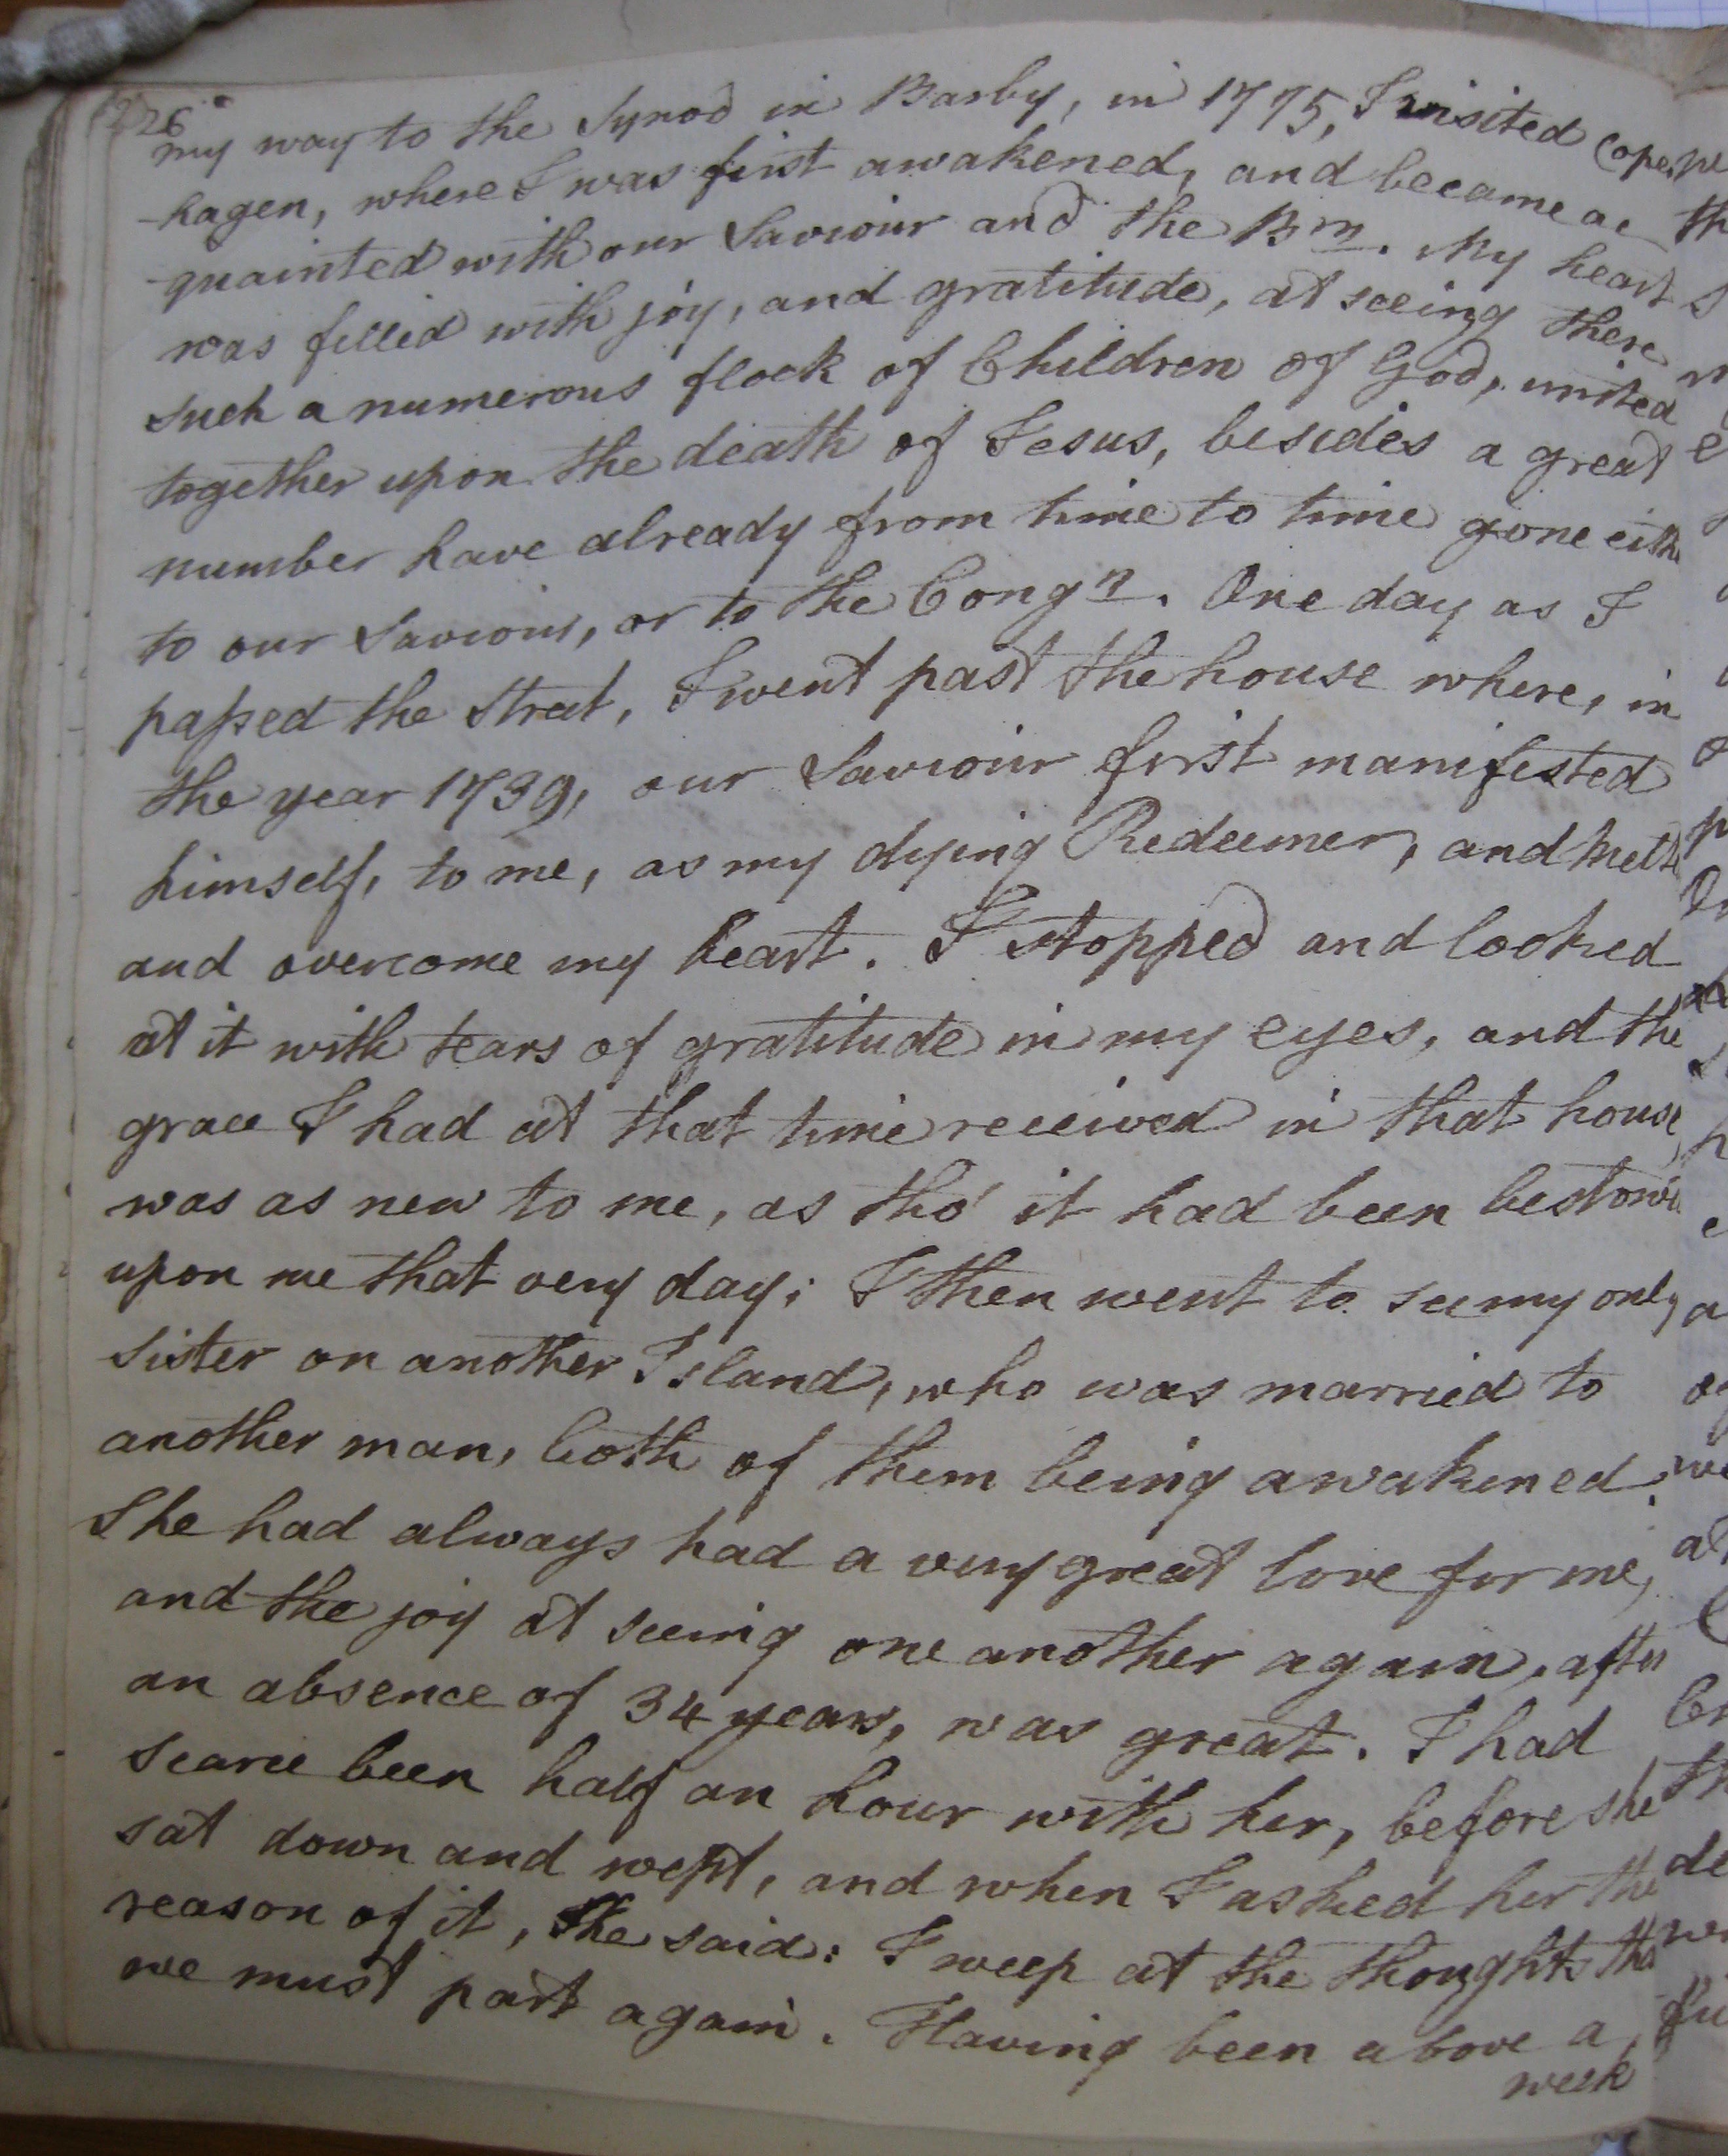 26
my way to the Synod in Barby, in 1775, I visited Copen
-hagen, where I was first awakened, and became ac
-quainted with our Saviour and the Brn. My heart
was filled with joy, and gratitude, at seeing there
such a numerous flock of Children of God, united
together upon the death of Jesus, besides a great
number have already from time to time gone eith
to our Saviour, or to the Congn. One day as I
passed the Street, I went past the house where, in
the year 1739, our Saviour first manifested
himself, to me, as my dying Redeemer, and melt
and overcome my heart. I stopped and looked
at it with tears of gratitude in my eyes, and the
grace I had at that time received in that house
was as new to me, as tho' it had been bestow
upon me that very day; I then went to see my only
sister on another Island, who was married to
another man, both of them being awakened.
She had always had a very great love for me,
and the joy at seeing one another again, after
an absence of 34 years, was great. I had
scarce been half an hour with her, before she
sat down and wept, and when I asked her the
reason of it, She said: I weep at the thoughts tha
we must part again. Having been above a
week